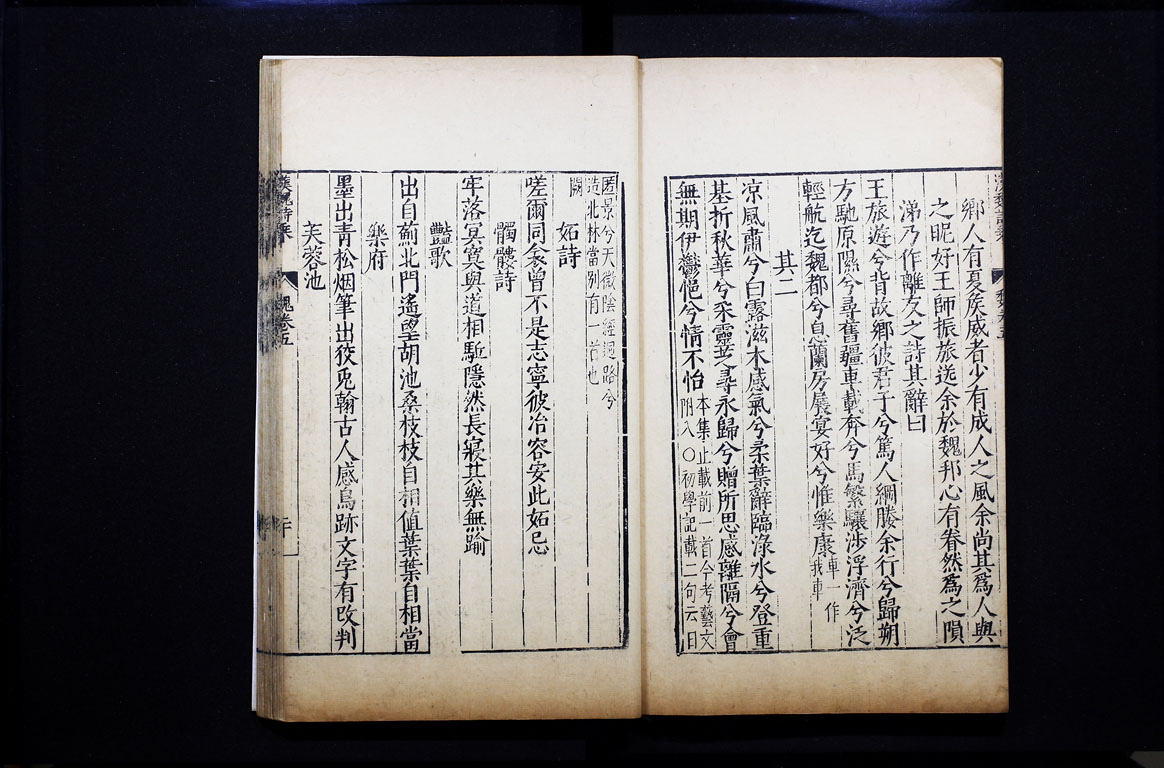 鄉人有夏矦威者少有成人之風余尚其爲人與
之昵好王師振旅送余於魏邦心有眷然爲之隕
涕乃作離友之詩其辭曰
王旅遊兮背故鄉彼君子兮篤人綱媵余行兮歸朔
方馳原隰兮尋舊疆車載奔兮馬繁驤涉浮濟兮泛
輕航迄魏都兮息蘭房展宴好兮惟樂康車一作
我車
其二
凉風肅兮白露滋木感氣兮柔葉辭臨淥水兮登重
基折秋華兮采靈芝尋永歸兮贈所思感離隔兮會
無期伊鬱悒兮情不怡本集止載前一首今考藝文
附入○初學記載二句云日
匿景兮天微陰經迴路兮
造北林當別有一首也
闕
妬詩
嗟爾同衾曾不是志寧彼冶容安此妬忌
髑髏詩
牢落冥寞與道相駈隱然長寢其樂無踰
豔歌
出自薊北門遙望胡池桑枝枝自相值葉葉自相當
樂府
墨出青松烟筆出狡兎翰古人感鳥跡文字有改判
芙蓉池
魏卷五